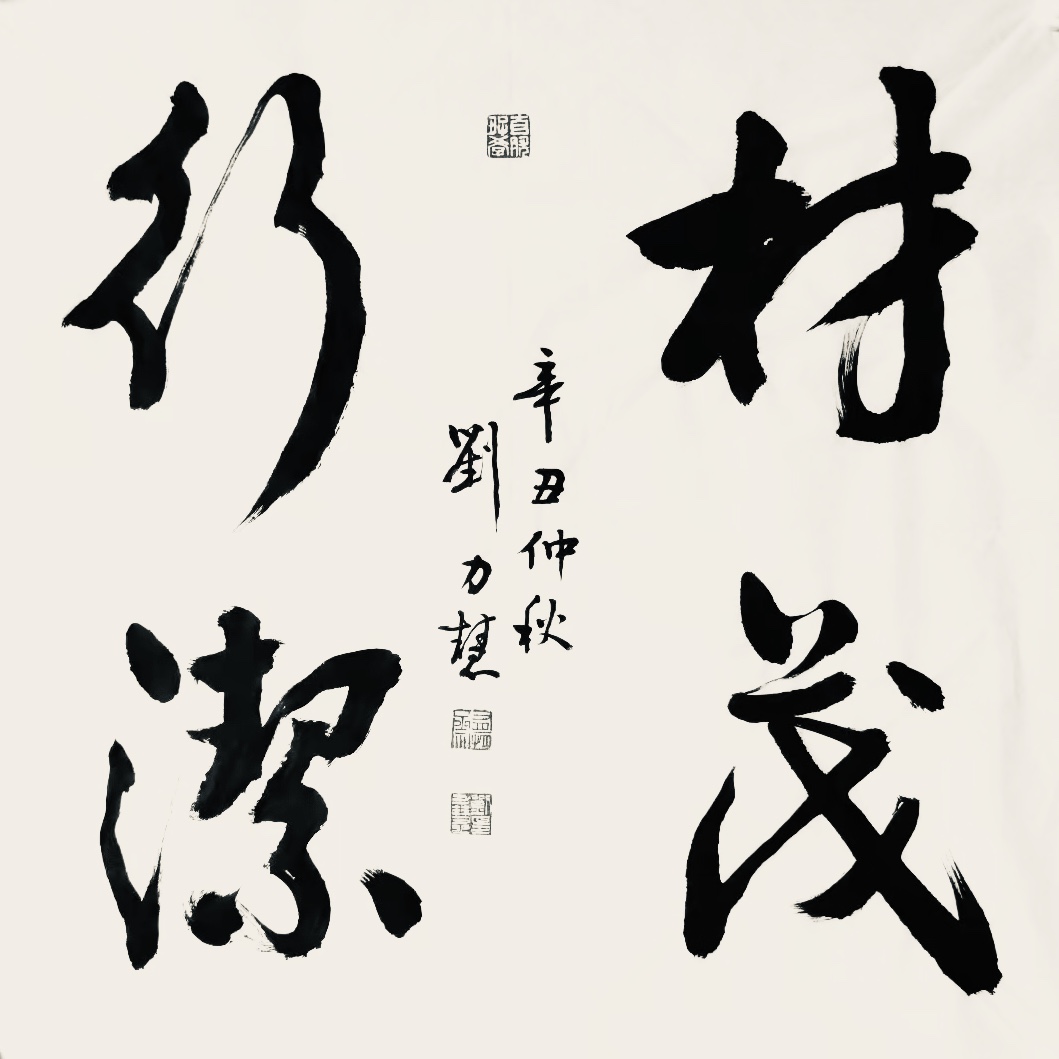 材茂
行潔
辛丑仲秋
劉力慧